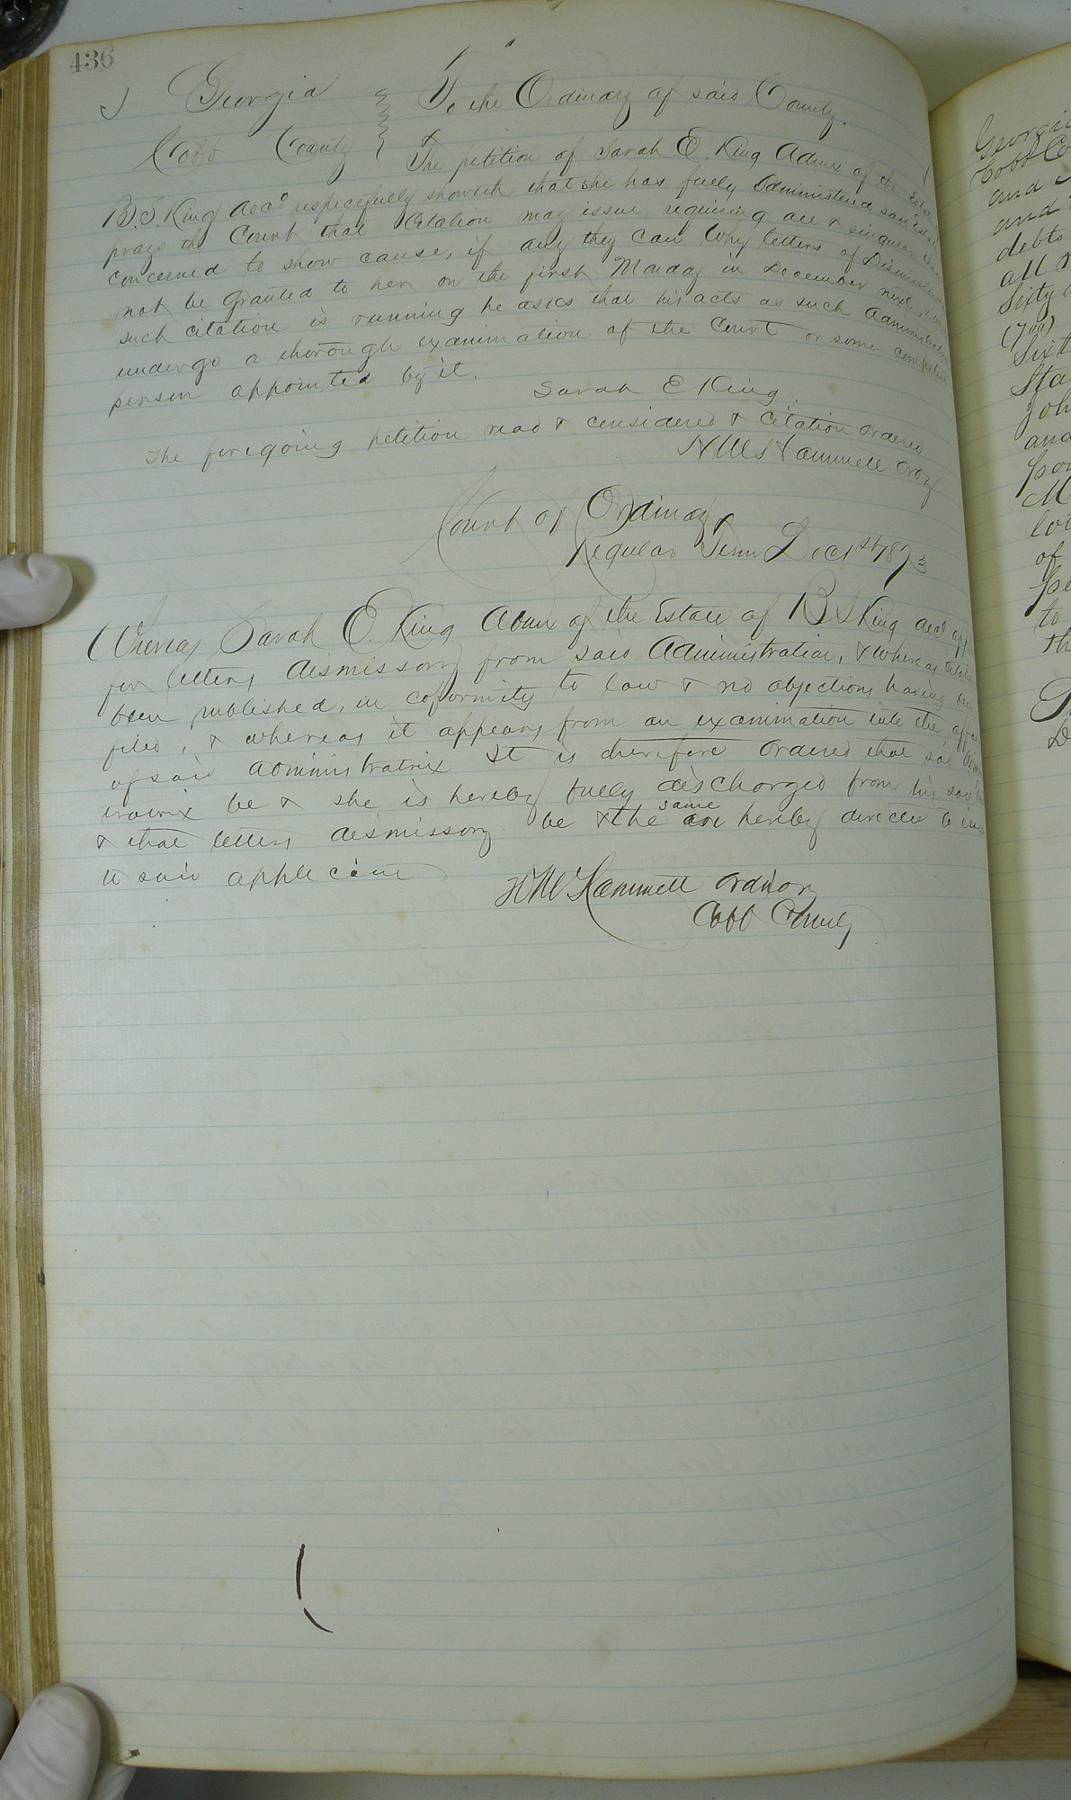 436
Georgia } To the Ordinary of said County.
Cobb County } The petition of Sarah E. King Admx of the Estate
B. S. King decd respectfully showeth that she has fully administered said Estate
prays the Court that Citation may issue requiring all & singular those
concerned to show cause, if any they can why letters of Dismission
not be granted to her on the first Monday in December next,
such citation is running he asks that his acts as such administrator
undergo a thorough examination of the Court or some competent
person appointed by it.
Sarah E King.
The foregoing petition read & considered & Citation ordered
H M Hammett Ordy
Court of Ordinary
Regular Term Dec 1st 1873
Whereas Sarah E. King Admx of the Estate of B S King decd
for letters dismissory from said Administration, & whereas
been published, in coformity to law & no objections having been
filed, & whereas it appears from an examination into the
of said administratrix It is therefore ordered that said
tratrix be & she is hereby fully discharged from his said
& that letters dismissory be & the same are hereby directed to issue
to said applicant
H M Hammett Ordinary
Cobb County
Georgia
Cobb Co
and
and
debts
all
Sixty
(7
Sixt
Sta
Joh
and
M
lot
of
pe
to
th
D